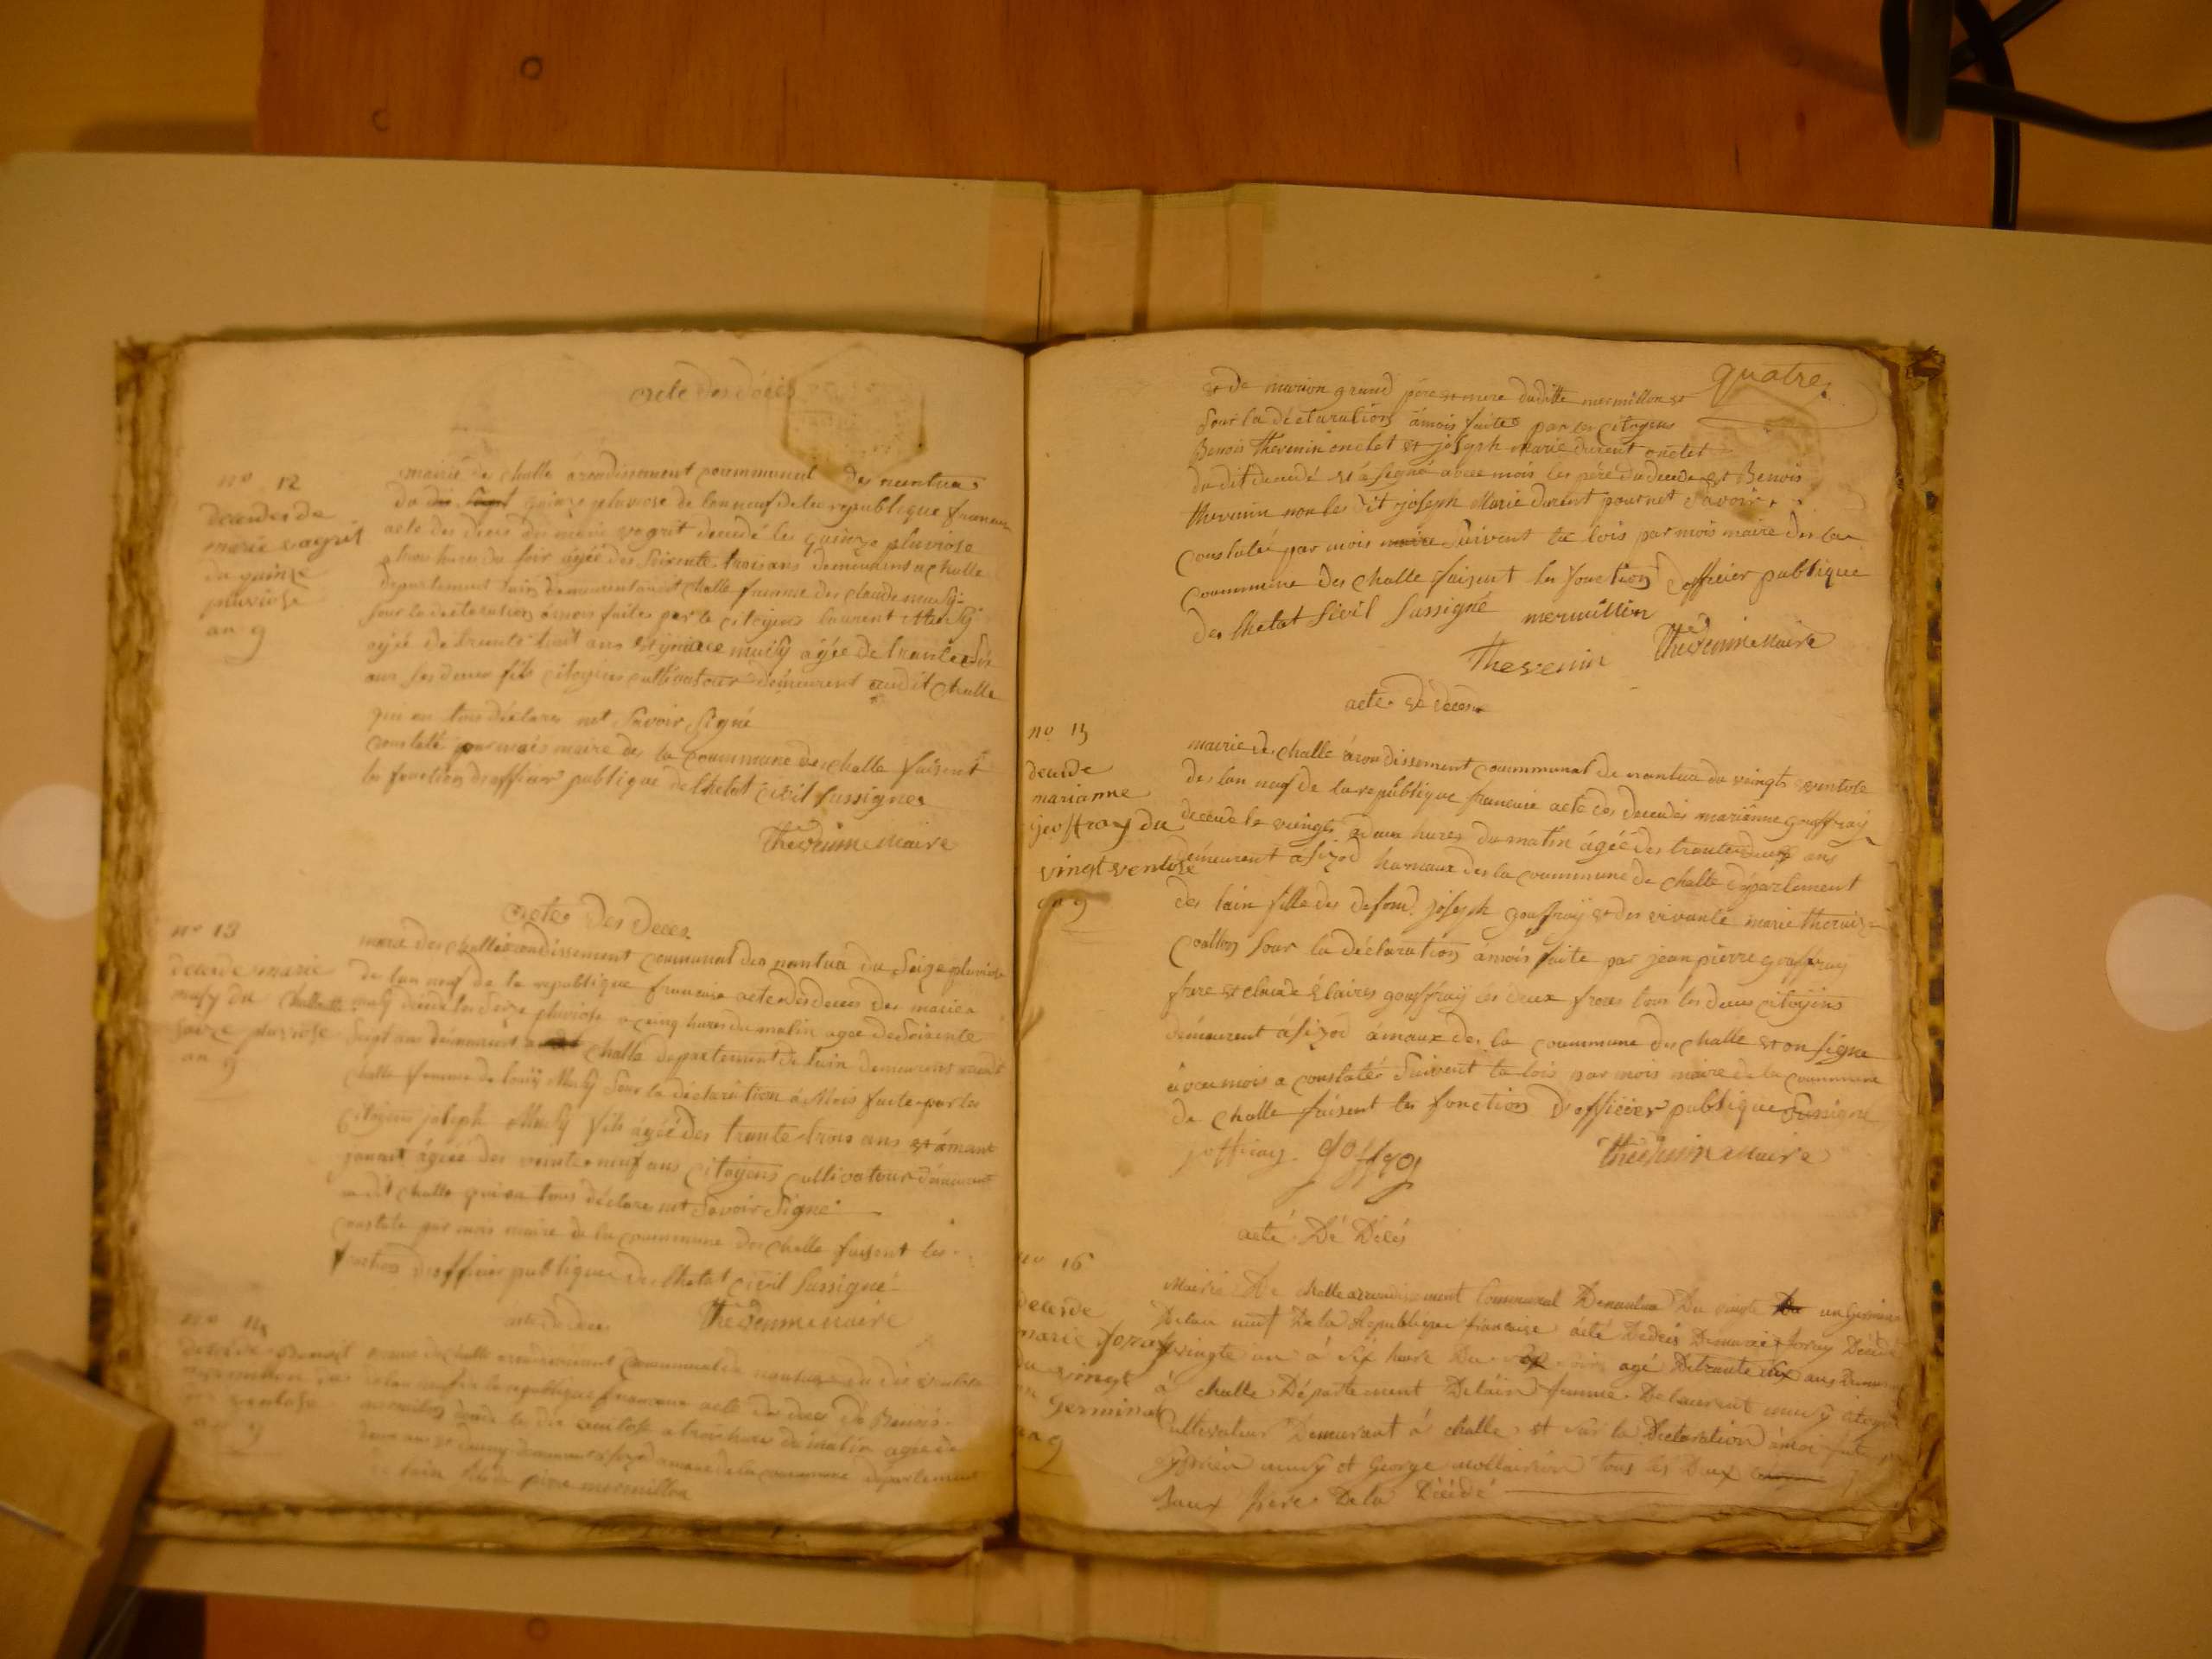 acte des décès
no 12
decerdes de
marie vagrit
du quinze
pluviose
an 9
mairie de challe arondissement coummunal des nantua
du quinze pluviose de lan neuf de la republique francaise
acte des deces des marie vogrit decedé les quinze pluviose
a trois hures du soir agéé des soixente trois ans demeurant a challe
departement lain demeurent audit challe famme des claude musy
sour la declaration amois faite par le citoyens laurent Musy
agéé de trente huit ans et musy agéé de trante six
ans les deux fils citoyens cultivatour demeurent audit challe
qui on tous déclares not savoir signé
constaté par mois maire des la coummune des challe faisent
les fonction d'officier publique de lhetat civil sussignes
Thevenin Maire
acte des deces
no 13
decerde marie
musy du
saize pluviose
an 9
marie des challe arondissement coumunal des nantua du seize pluviose
de lan neuf de la republique francaise acte des deces des marie
musy decede les seize pluviose a cinq hures du matin agee de soisente
sept ans demeurent challe departement de lain demeurent audit
challe femme de louis Musy sour la declaration a Mois faite par les
citoyens joseph Musy fils agéé des trante trois ans et amant
agéé des vente neuf ans citoyens cultivatour demeurent
a dit challe qui on tous déclares not savoir signé
constate par mois maire de la coummune des challe faisent les
fonction d'officier publique des lhetat civil sussigné
Thevenin Maire
acte de deces
no 14
decerde Benoit
mermillon du
dix ventose
an 9
mairie de challe arondissement coummunal de nantua du dix ventose
de lan neuf de la republique francaise acte de deces de Benois
mermillon decede le dix ventose a trois hures du matin agee de
deux ans et demy demeurent a sizod amaux de la coummune departement
de lain père mermillon
quatre
et de marion grand père et mere dudille mermillon et
sour la déclaration amois faites par les citoyens
Benois Thevenin onclet et joseph marie durent onclet
dudit decedé et a signé avec mois les père du decede et Benois
thevenin non les dit joseph Marie durent pour not savoir
constaté par mois maire suivent la lois par mois maire des la
coummune des challe faisent les fonction d'officier publique
des lhetat sivil sussigné mermillion
Thevenin Thevenin Maire
acte de deces
no 15
decerde
marianne
geoffray du
vingt ventose
an 9
mairie des challe arondissement coummunal de nantua du vingts ventose
des lan neuf de la republique francaise acte des decedés marianne gouffray
decede le vingts a deux hures du matin agéé des trante deux ans
demeurent a sizod hamaux des la coummune de challe département
des lain fille des defond joseph gouffray et des vivante marie
coullon sour la déclaration amois faite par jean pierre gouffray
frere et claude élaires gouffray les deux freres tous les deux citoyens
demeurent a sizod amaux des la coummune des challe et on signe
avec mois a constaté suivent la lois par mois maire de la coummune
de challe faisent les fonction d'officier publique sussigne
joffray goffroy Thevenin Maire
acté Dé Décés
no 16
decerde
marie foray
du vingt
un germinal
an 9
Mairie De challe arrondissement Communal Denantua Du vingte un Germinal
Delan neuf Dela Republique francaise acté Dedécés Demarie foray Décédé
vingte un à six heure Du soir agé Detrante six ans Demeurant
à challe Département Delain femme Delaurent musy citoyen
Cultivateur Demeurant à challe et sur la Declaration amoi faite
musy et George tous les Deux
baux frere Dela Décédé